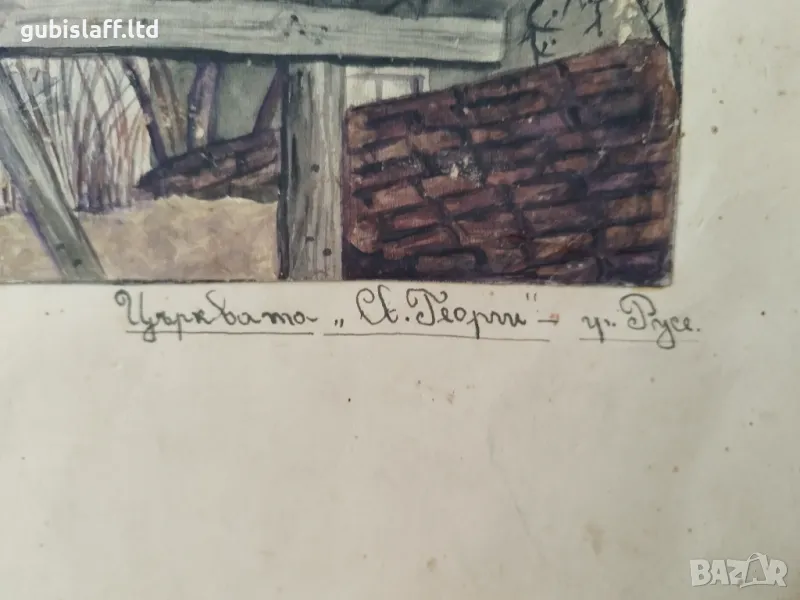 gubislaff.ltd
Църквата „Св. Георги" – гр. Русе.
BAZAR